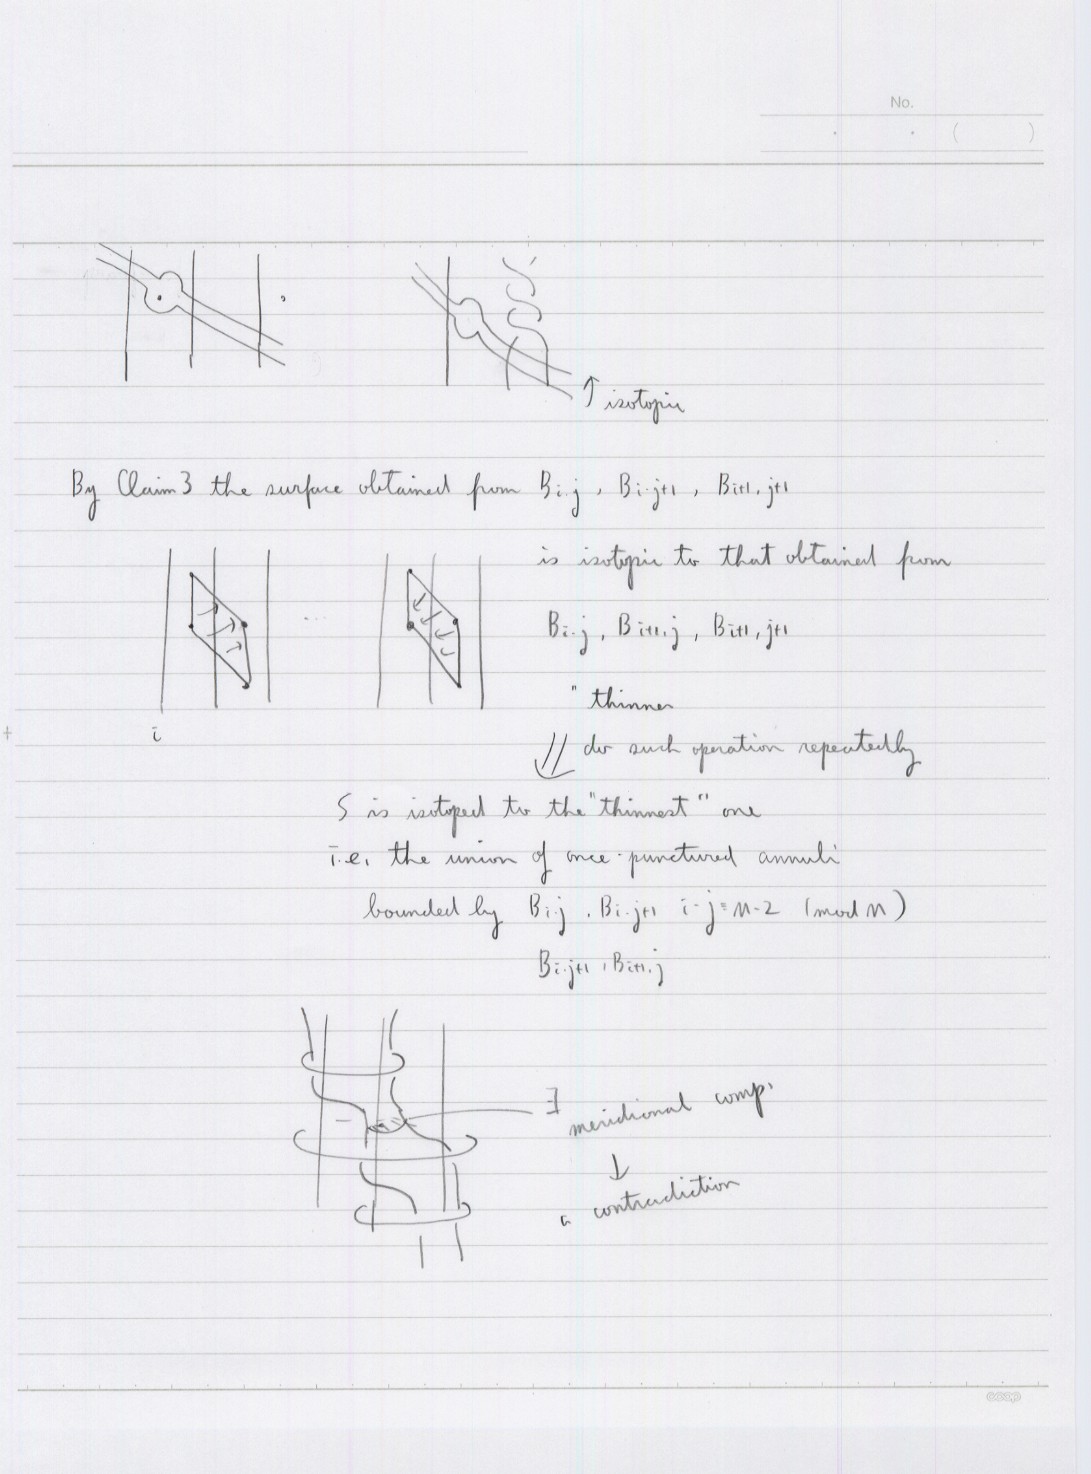 No.
( )
↑ isotopic
By Claim 3 the surface obtained from Bi,j , Bi,j+1 , Bi+1,j+1
is isotopic to that obtained from
Bi,j , Bi+1,j , Bi+1,j+1
i
" thinner
⇓ do such operation repeatedly
S is isotoped to the "thinnest" one
i.e. the union of once-punctured annuli
bounded by Bi,j , Bi,j+1 i-j≡n-2 (mod n)
Bi,j+1 , Bi+1,j
∃ meridional comp.
↓
a contradiction